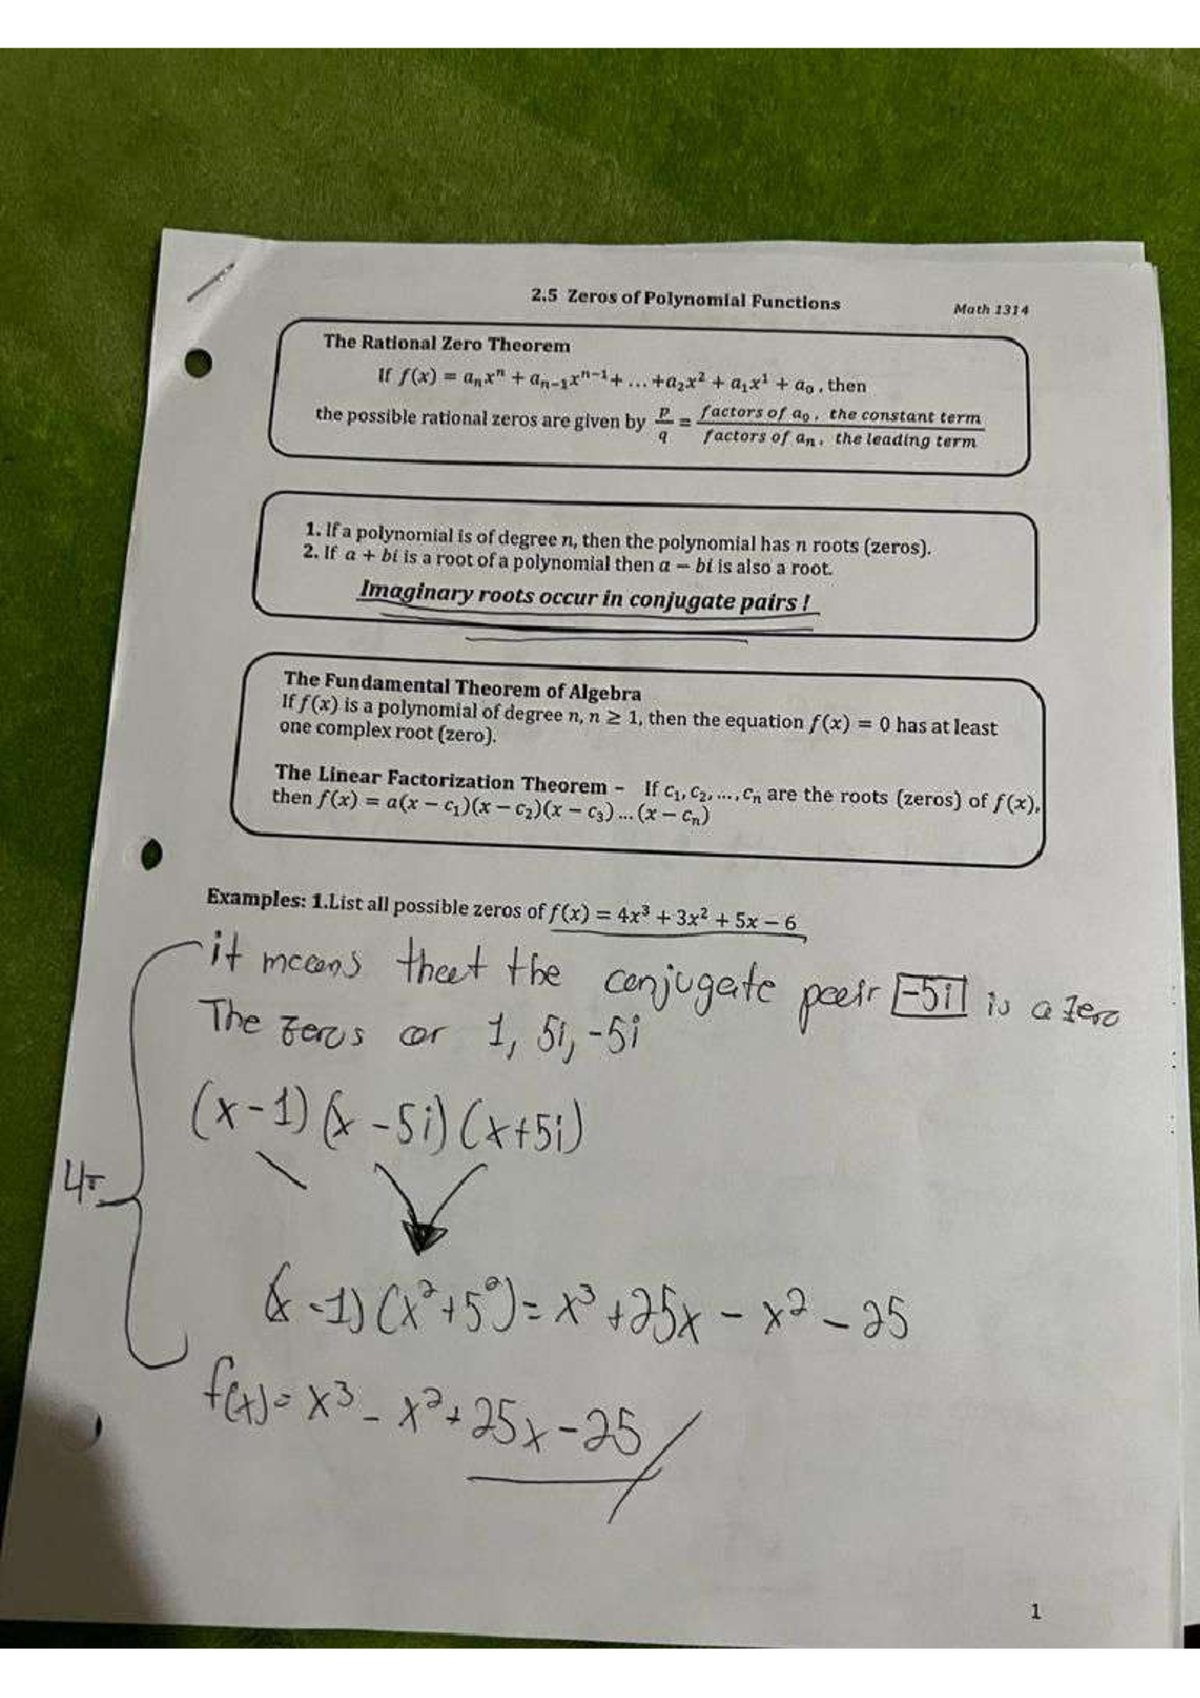 2.5 Zeros of Polynomial Functions
Math 1314
The Rational Zero Theorem
If f(x) = aₙxⁿ + aₙ₋₁xⁿ⁻¹ + ... +a₂x² + a₁x¹ + a₀ , then
the possible rational zeros are given by p/q = factors of a₀ , the constant term / factors of aₙ , the leading term
1. If a polynomial is of degree n, then the polynomial has n roots (zeros).
2. If a + bi is a root of a polynomial then a − bi is also a root.
Imaginary roots occur in conjugate pairs !
The Fundamental Theorem of Algebra
If f(x) is a polynomial of degree n, n ≥ 1, then the equation f(x) = 0 has at least
one complex root (zero).
The Linear Factorization Theorem – If c₁, c₂, ..., cₙ are the roots (zeros) of f(x),
then f(x) = a(x − c₁)(x − c₂)(x − c₃) ... (x − cₙ)
Examples: 1.List all possible zeros of f(x) = 4x³ + 3x² + 5x − 6
it means that the conjugate pair -5i is a zero
The zeros ar 1, 5i, -5i
(x-1)(x-5i)(x+5i)
(x-1)(x²+5²)= x³+25x-x²-25
f(x)= x³-x²+25x-25
1